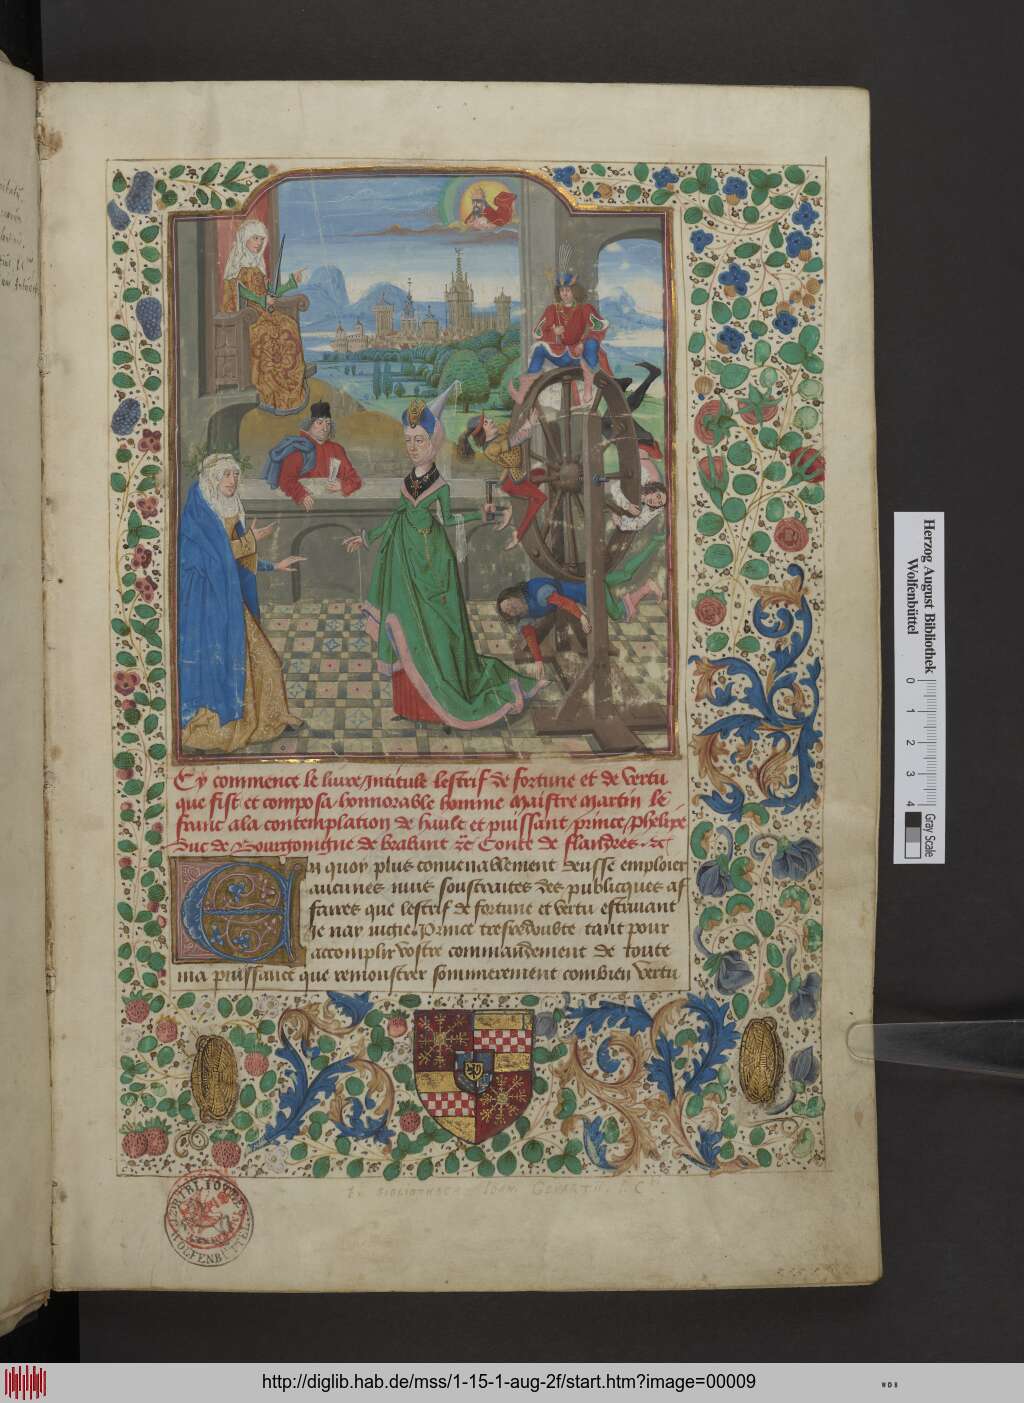 Cy commence le livre Intitule lestrif de fortune et de vertu
que fist et composa honnorable homme maistre martin le
franc a la contemplation de hault et puissant prince phelipe
duc de Bourgoingne de brabant &c Conte de flandres &c
En quoy plus convenablement deusse emploier
aucunes nuis soustraites des publicques af
faires que lestrif de fortune et vertu estrivant
Je nay vighe Prince tresredoubte tant pour
accomplir vostre commandement de toute
ma puissance que remonstrer sommierement combien vertu
Ex BIBLIOTHECA
BIBLIOTHEK
WOLFENBÜTTEL
Herzog August Bibliothek
Wolfenbüttel
0 1 2 3 4
Gray Scale
http://diglib.hab.de/mss/1-15-1-aug-2f/start.htm?image=00009
WDB